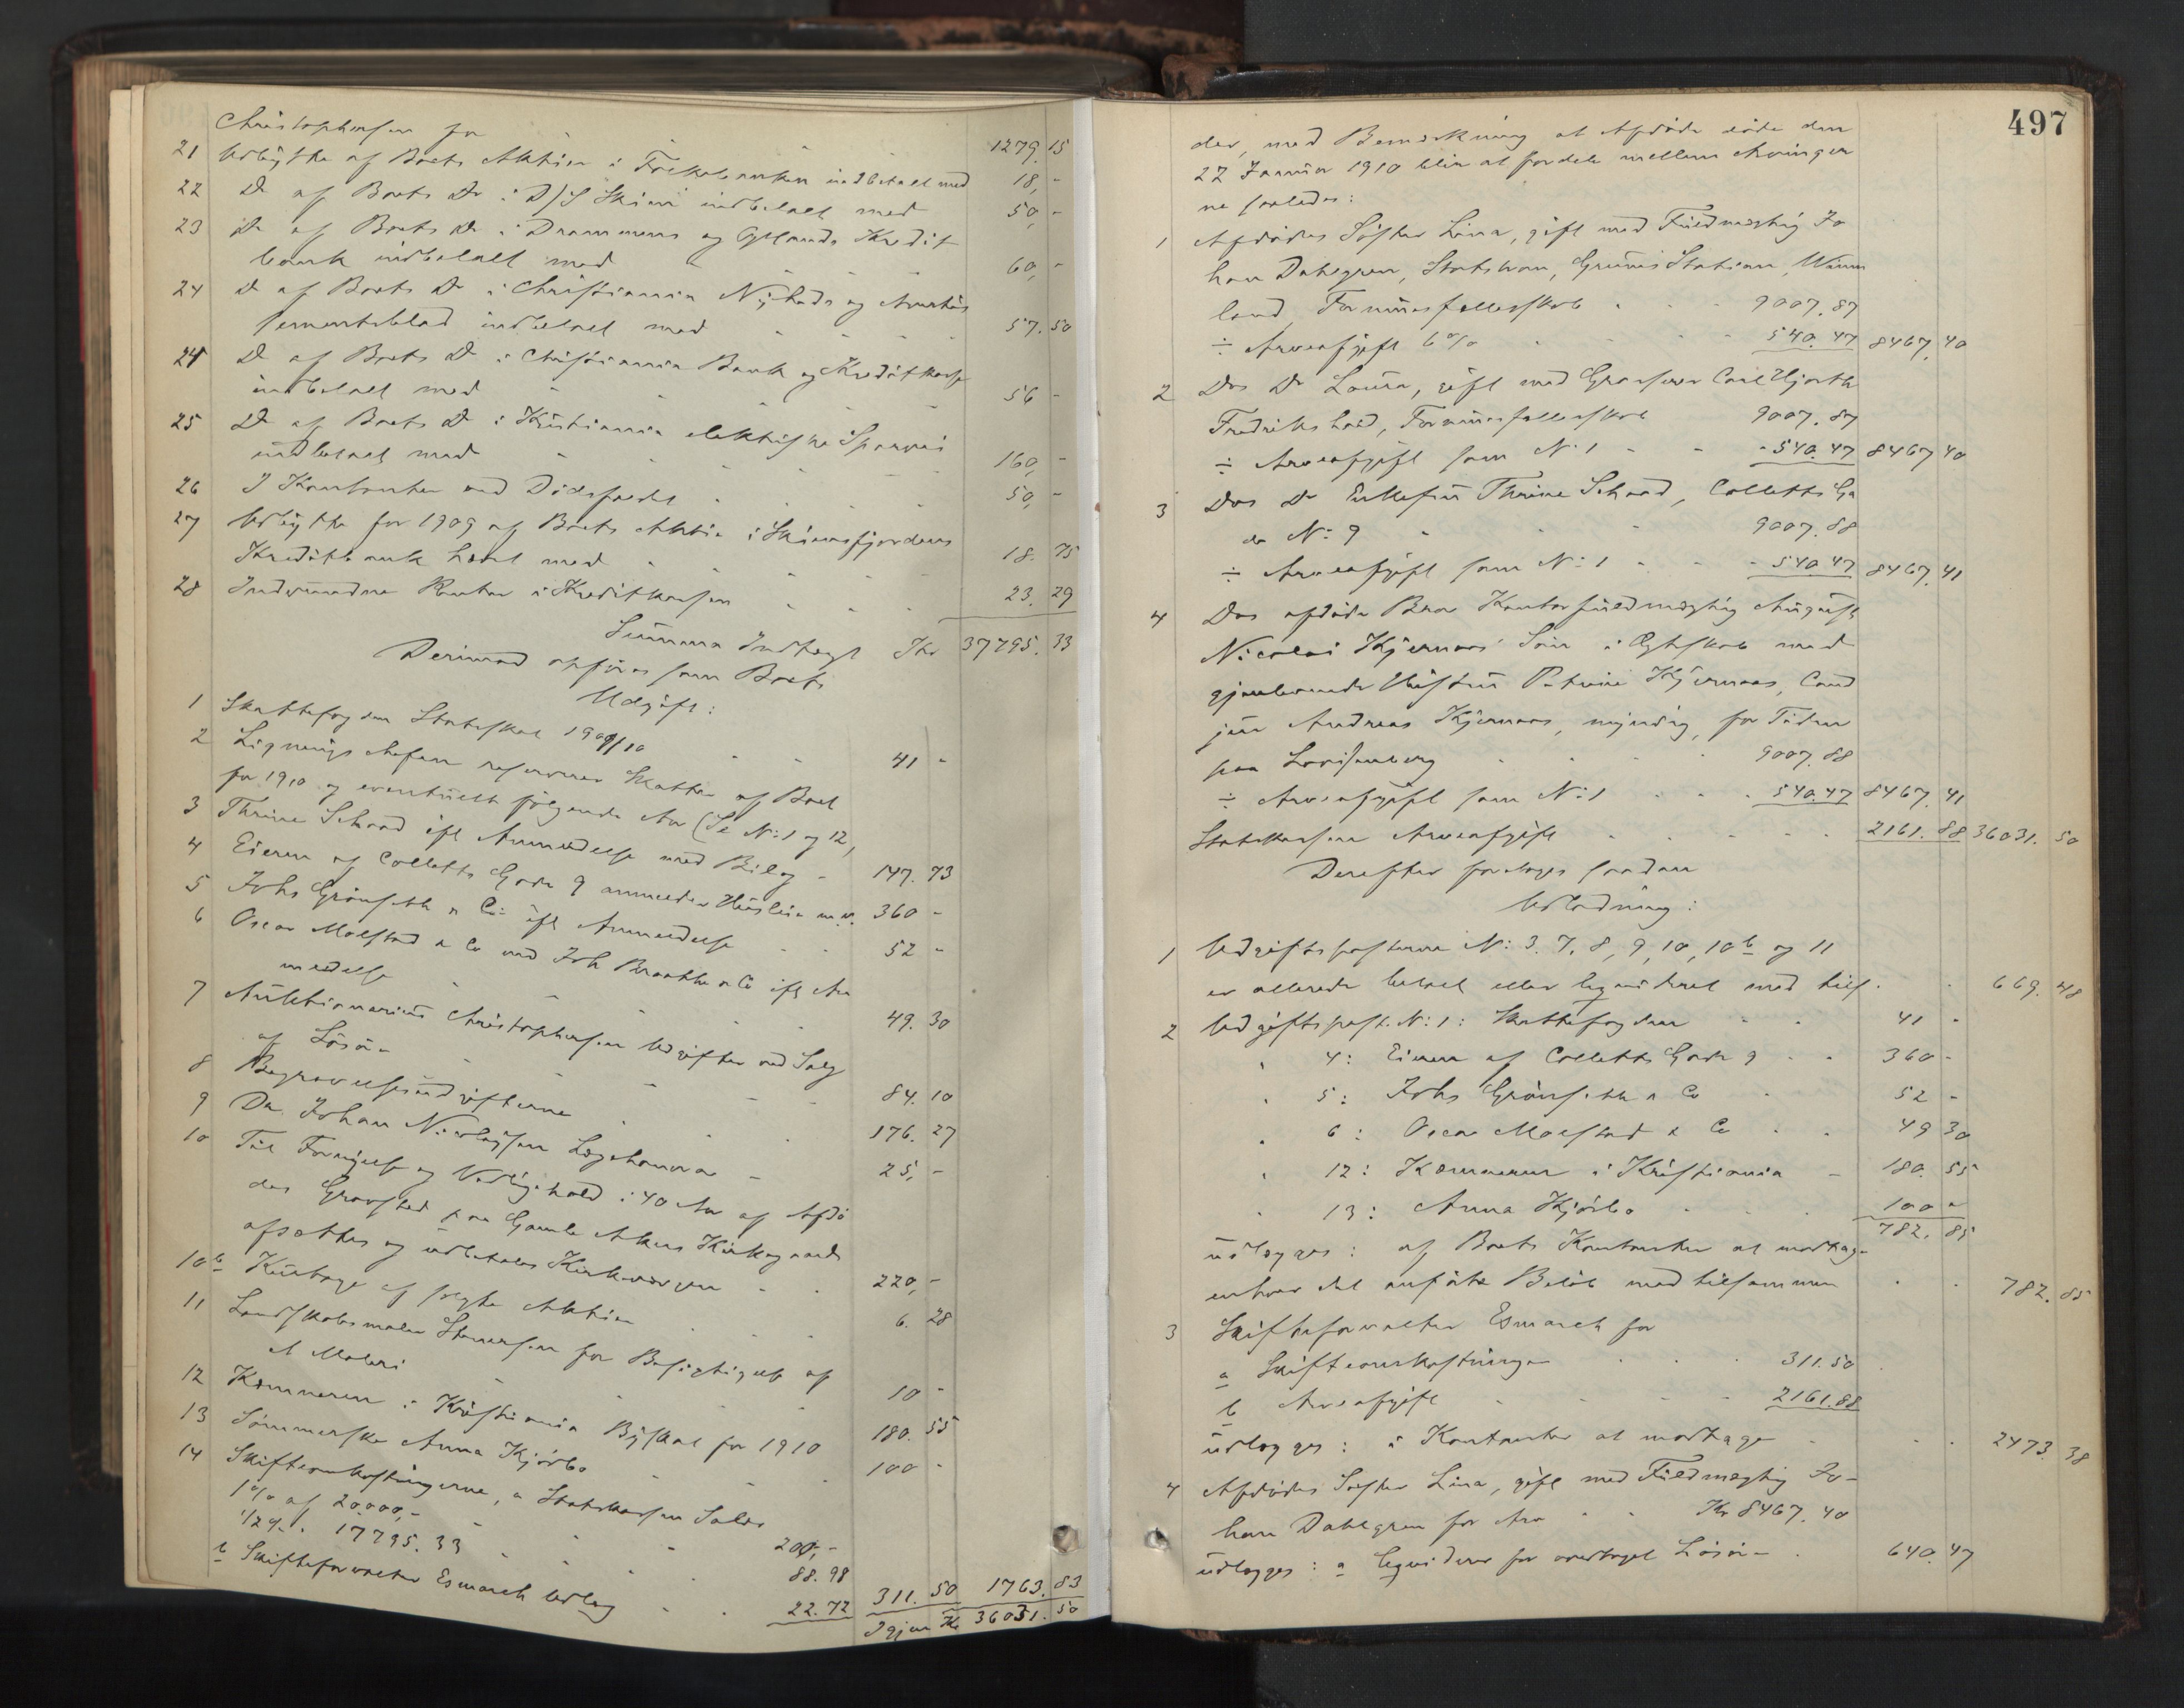 Christophersen for 1279. 15
21 Udbytte af Boets Aktier i Folkebanken indbetalt med 18, -
22 Do af Boets Do i D/S Skiens indbetalt med 50, -
23 Do af Boets Do i Drammens og Oplands Kredit
bank indbetalt med 60, -
24 Do af Boets Do i Christiania Nyheds og Avertis
sementsblad indbetalt med 57. 50
24 Do af Boets Do i Christiania Bank og Kreditkasse
indbetalt med 56 -
25 Do af Boets Do i Kristiania elektriske Sporvei
indbetalt med 160, -
26 I Kontanter ved Dødsfaldet 50, -
27 Udbytte for 1909 af Boets Aktie i Skiensfjordens
Kreditbank hævet med 18. 75
28 Indvundne Renter i Kreditkassen 23. 29
Summa Indtægt Kr 37795. 33
Derimod opføres som Boets
Udgift:
1 Skattefogden Statsskat 1909/10 41 -
2 Lignings chefen reserverer Skatter af Boet
for 1910 og eventuelt følgende Aar (Se No: 1 og 12,
3 Thrine Schaad ifl Anmeldelse med Bilag 147. 73
4 Eieren af Colletts Gade 9 anmelder Husleie m.v. 360 -
5 Johs Grønseth & Co: ifl Anmeldelse 52 -
6 Oscar Moestad & Co ved Joh Braathe & Co ifl An
meldelse 49. 30
7 Auktionarius Christophersen Udgifter ved Salg
af Løsøre 84. 10
8 Begravelsesudgifterne 176. 27
9 Dr. Johan Nicolaysen Lægehonorar 25, -
10 Til Fornyelse og Vedligehold i 40 Aar af Afdø
des Gravsted paa Gamle Akers Kirkegaard
afsættes og udbetales Kirkeværgen 220, -
10b Kurtage af solgte Aktier 6. 28
11 Landskabsmaler for Besigtigelse af
et Maleri 10 -
12 Kæmneren i Kristiania Byskat for 1910 180. 55
13 Sømmerske Anna Kjørbo 100 -
14 Skifteomkostningerne, a Statskassen Salær
1 % af 20.000,- 200,-
1/2 % " 17795. 33 88. 98
b Skifteforvalter Esmarch Udlæg 22. 72 311. 50 1763. 83
Igjen Kr 36031. 50
497
der, med Bemærkning at Afdøde døde den
27 Januar 1910 blir at fordele mellem Arvinger
ne saaledes:
1 Afdødes Søster Lina, gift med Fuldmægtig Jo
han Dahlgren, Grums Station, Werm
land, Formuesfællesskab 9007. 87
÷ Arveafgift 6 % 540. 47 8467. 40
2 Des Do Laura, gift med Grosserer Carl Hjorth
Fredrikshald, Formuesfællesskab 9007. 87
÷ Arveafgift som No 1 540. 47 8467 40
3 Des Do Enkefru Thrine Schaad, Colletts Ga
de No: 9 9007. 88
÷ Arveafgift som No: 1 540. 47 8467. 41
4 Des afdøde Bror Kontorfuldmægtig August
Nicolai Kjernaas' Søn i Ægteskab med
gjenlevende Hustru Petrine Kjernaas, Cand
jur Andreas Kjernaas, myndig, for Tiden
paa Lovisenberg 9007. 88
÷ Arveafgift som No: 1 540. 47 8467. 41
Statskassen Arveafgift 2161. 88 36031. 50
Derefter foretoges saadan
Udlodning:
1 Udgiftsposterne No: 3. 7. 8, 9, 10, 10b og 11
er allerede betalt eller liqvideret med tils. 669. 48
2 Udgiftspost. No: 1: Skattefogden 41 -
" 4: Eieren af Colletts Gade 9 360 -
" 5: Johs Grønseth & Co 52 -
" 6: Oscar Moestad & Co 49 30
" 12: Kæmneren i Kristiania 180. 55
" 13: Anna Kjørbo 100 -
782. 85
udlægges: af Boets Kontanter at modtage
enhver det anførte Beløb med tilsammen 782. 85
3 Skifteforvalter Esmarch for
a Skifteomkostninger 311. 50
b Arveafgift 2161. 88
udlægges: i Kontanter at modtage 2473. 38
4 Afdødes Søster Lina, gift med Fuldmægtig Jo-
han Dahlgren for Arv Kr 8467. 40
udlægges: a liqviderer for overtaget Løsøre 640. 47